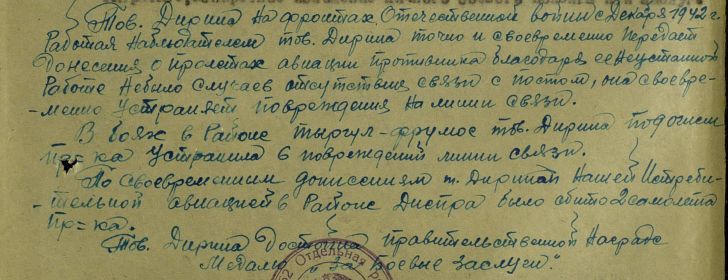 Тов. Дирина на фронтах Отечественной войны с Декабря 1942 г.
Работая Наблюдателем тов. Дирина точно и своевременно передает
донесения о пролетах авиации противника благодаря ее неустанной
Работе небыло случаев отсутствия связи с постом, она своевре-
-менно устраняет повреждения на линии связи.
В боях в Районе Тыргул-Фрумос тов. Дирина под огнем
пр-ка устранила 6 повреждений линии связи.
По своевременным донессениям т. Дириной нашей Истреби-
-тельной авиацией в Районе Днепра было сбито 2 самолета
пр-ка.
Тов. Дирина Достойна Правительственной Награде
Медалью "За боевые заслуги".
Отдельная